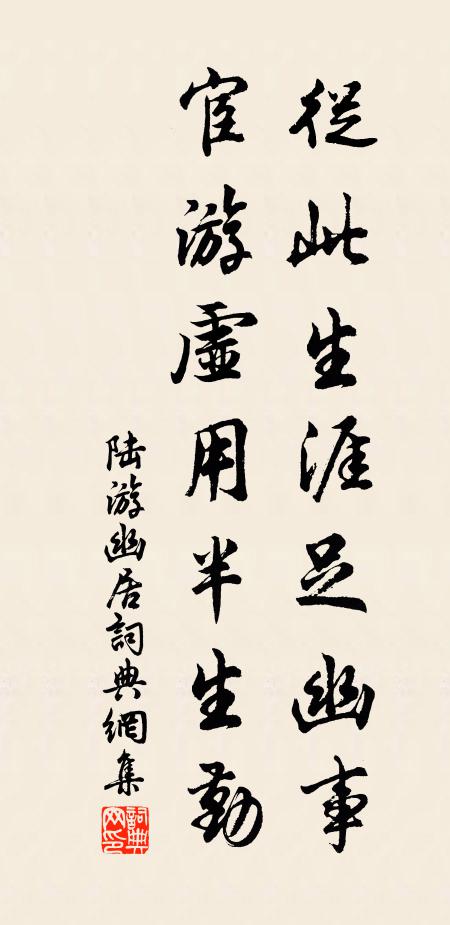 從此生涯足幽事
宦游虛用半生勤
陸游幽居詞典網集
詞典网印